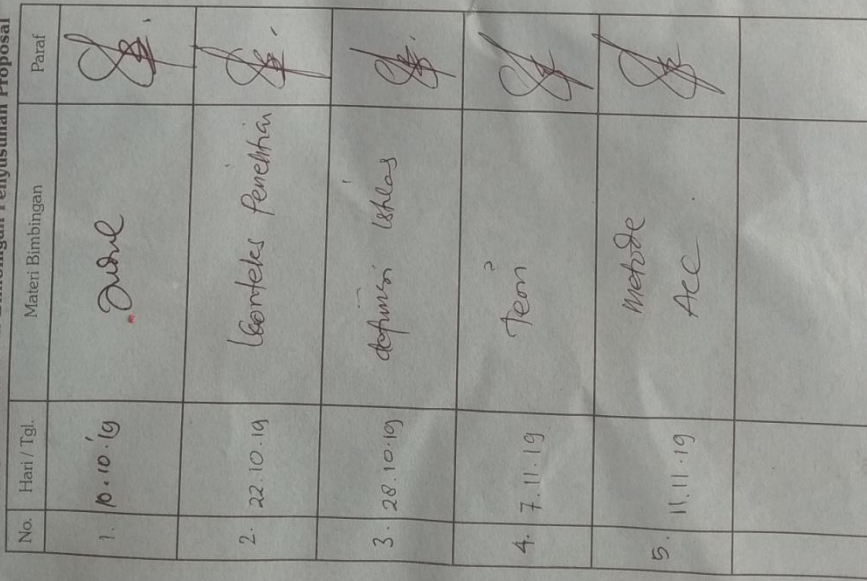 Bimbingan Penyusunan Proposal
No. Hari / Tgl. Materi Bimbingan Paraf
1. 10.10.19 Judul
2. 22.10.19 Konteks Penelitian
3. 28.10.19 definisi Istilas
4. 7.11.19 Teori
5. 11.11.19 metode
Acc